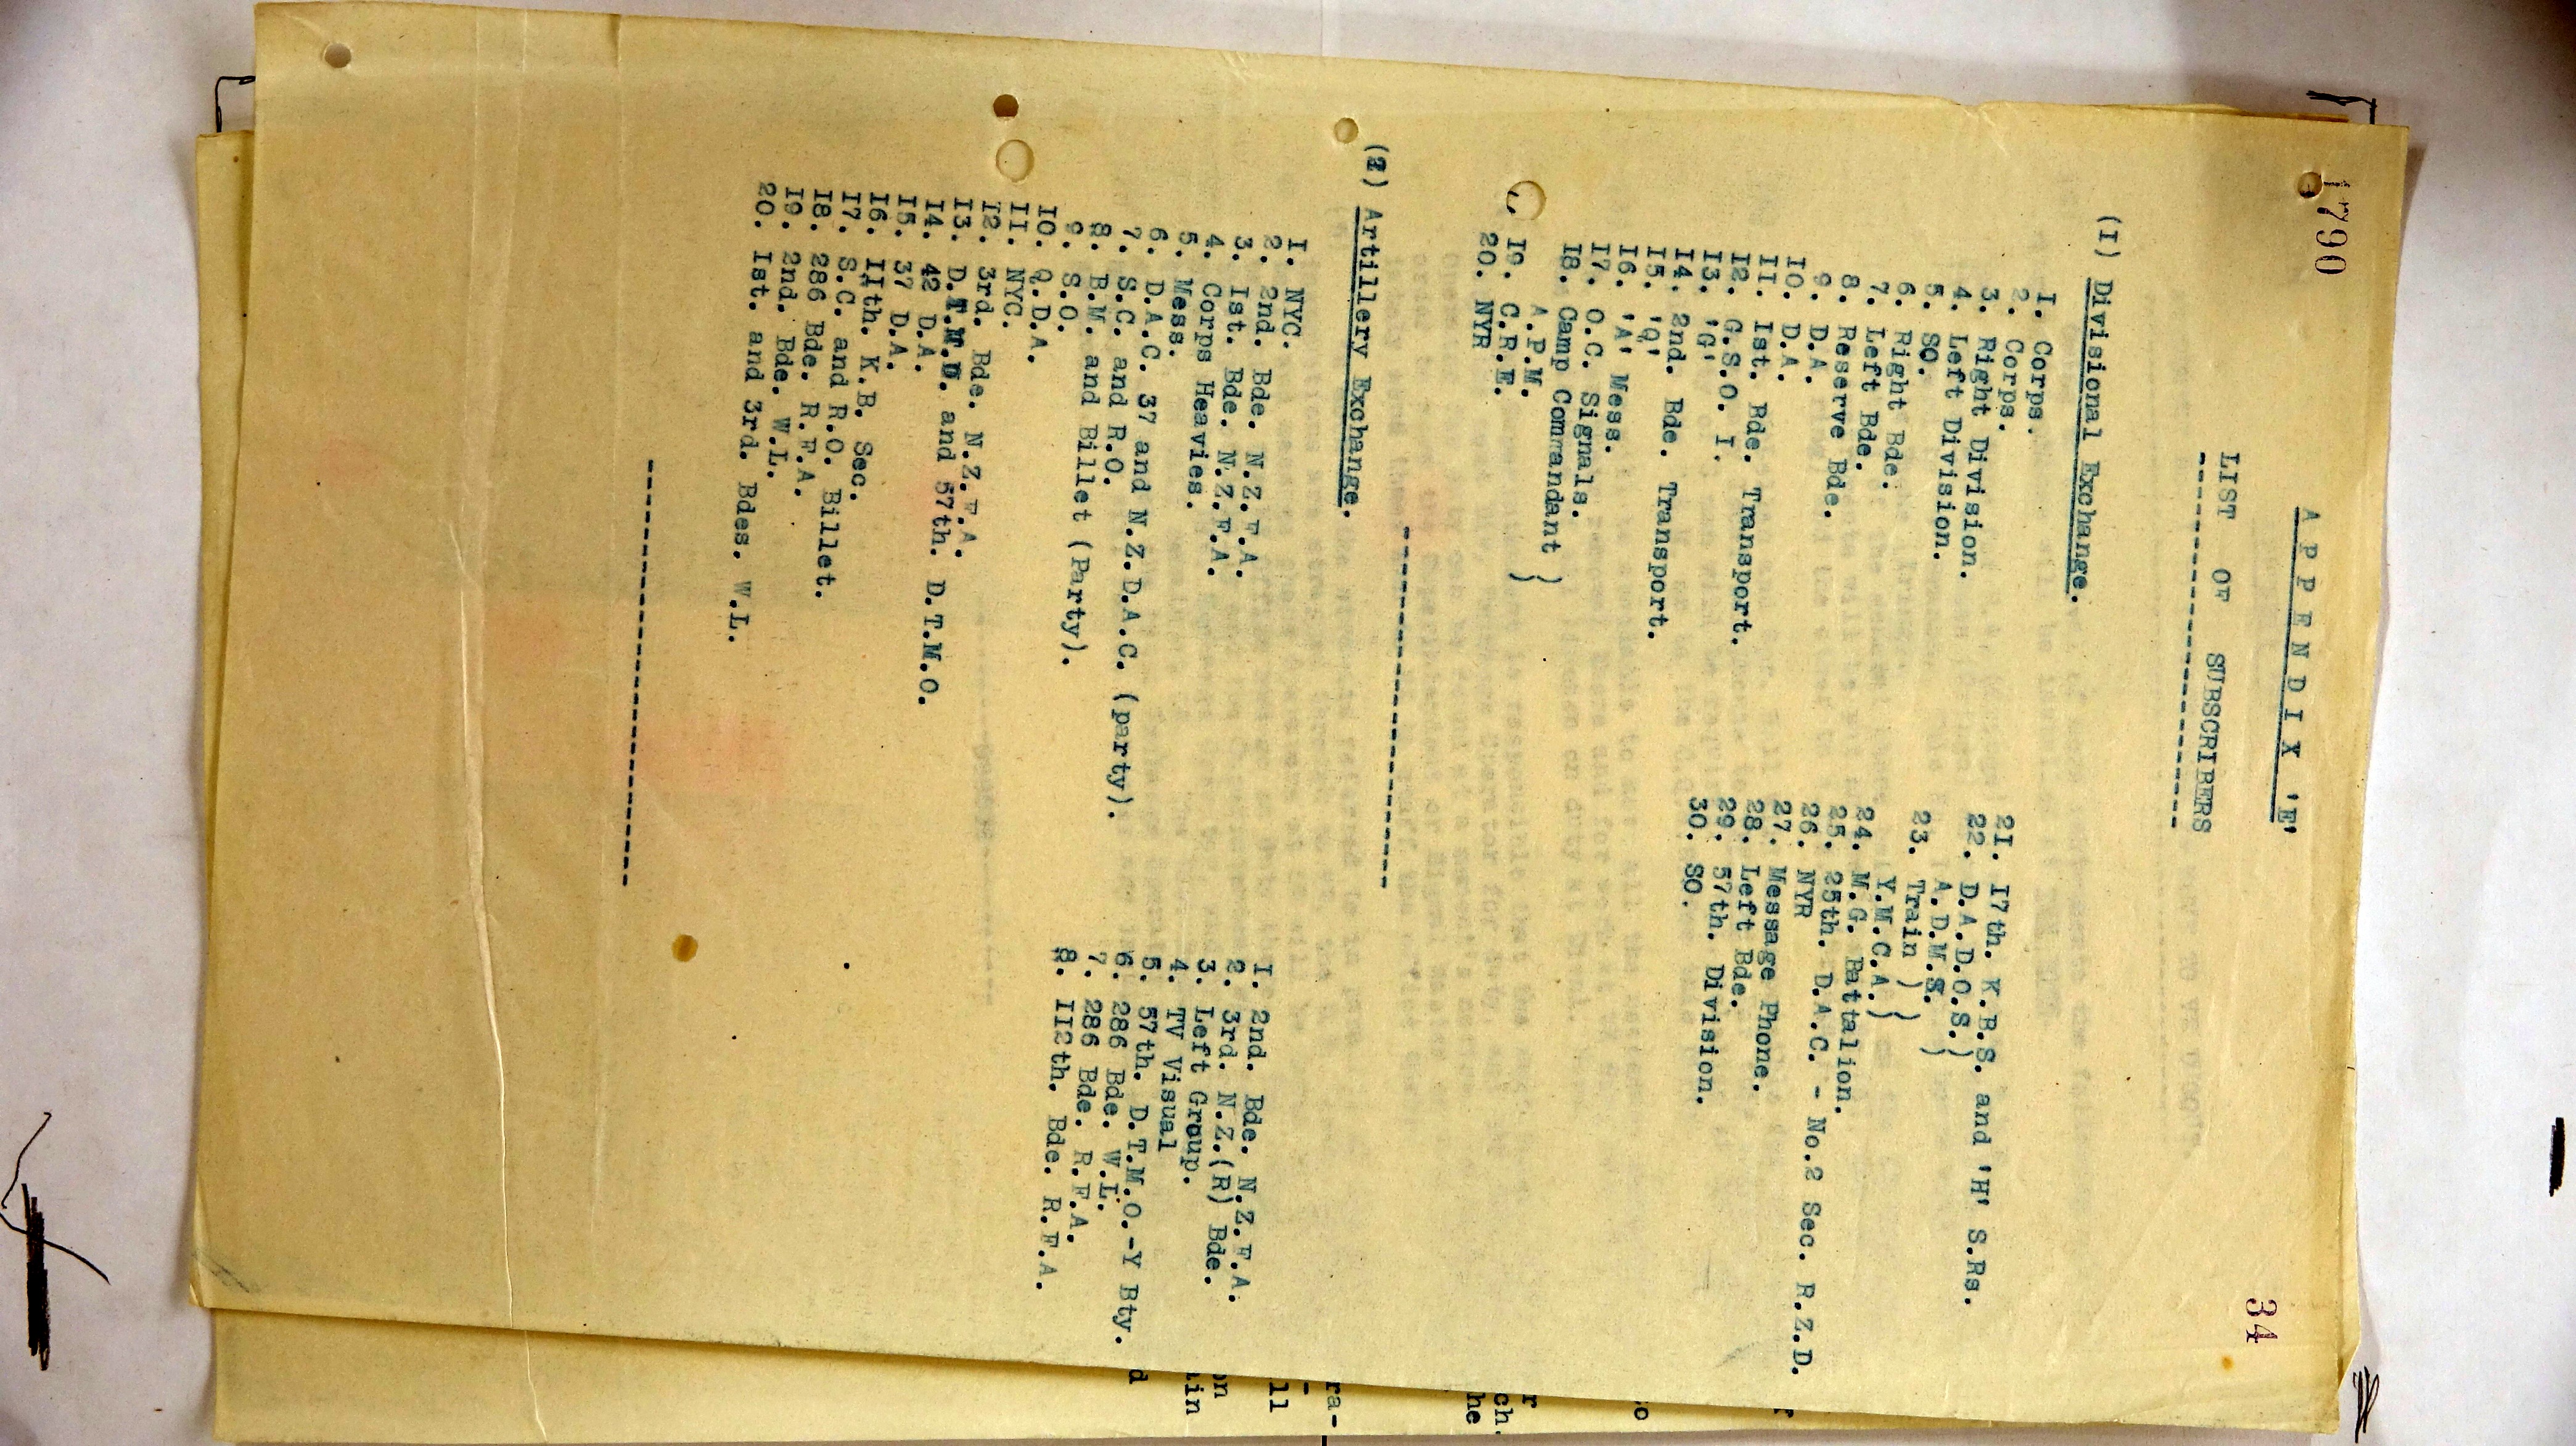 1790
34
A P P E N D I X 'E'
LIST OF SUBSCRIBERS
(I) Divisional Exchange.
I. Corps.
2. Corps.
3. Right Division.
4. Left Division.
5. SQ.
6. Right Bde.
7. Left Bde.
8. Reserve Bde.
9. D.A.
I0. D.A.
II. Ist. Bde. Transport.
I2. G.S.O. I.
I3. 'G'
I4. 2nd. Bde. Transport.
I5. 'Q'
I6. 'A' Mess.
I7. O.C. Signals.
I8. Camp Commandant )
A.P.M. )
I9. C.R.E.
20. NYR
2I. I7th. K.B.S. and 'H' S.Rs.
22. D.A.D.O.S.)
A.D.M.S. )
23. Train )
Y.M.C.A.)
24. M.G. Battalion.
25. 25th. D.A.C. - No.2 Sec. R.Z.D.
26. NYR
27. Message Phone.
28. Left Bde.
29. 57th. Division.
30. SQ.
(2) Artillery Exchange.
I. NYC.
2. 2nd. Bde. N.Z.F.A.
3. Ist. Bde. N.Z.F.A.
4. Corps Heavies.
5. Mess.
6. D.A.C. 37 and N.Z.D.A.C. (party).
7. S.C. and R.O.
8. B.M. and Billet (Party).
9. S.O.
I0. Q.D.A.
II. NYC.
I2. 3rd. Bde. N.Z.F.A.
I3. and 57th. D.T.M.O.
I4. 42 D.A.
I5. 37 D.A.
I6. IIth. K.B. Sec.
I7. S.C. and R.O. Billet.
I8. 286 Bde. R.F.A.
I9. 2nd. Bde. W.L.
20. Ist. and 3rd. Bdes. W.L.
I. 2nd. Bde. N.Z.F.A.
2. 3rd. N.Z.(R) Bde.
3. Left Group.
4. TV Visual
5. 57th. D.T.M.O.-Y Bty.
6. 286 Bde. W.L.
7. 286 Bde. R.F.A.
8. II2th. Bde. R.F.A.